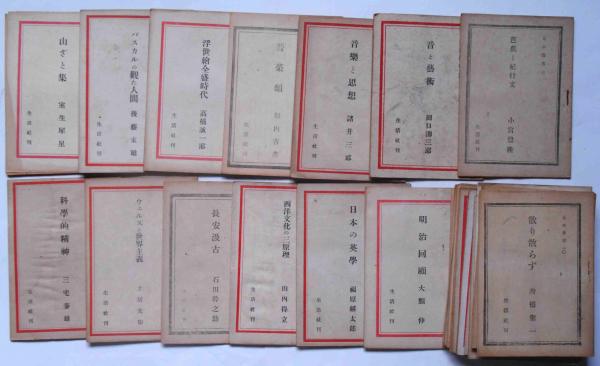 山ざと集
室生犀星
パスカルの觀た人間
後藤末雄
生活社刊
浮世繪全盛時代
高橋誠一郎
生活社刊
竹内吉
音樂と思想
諸井三郎
生活社刊
音と藝術
田口泖三郎
生活社刊
芭蕉と紀行文
小宮豐隆
科學的精神
三宅泰雄
生活社刊
ウェルズの世界主義
土居光知
生活社刊
長安汲古
石田幹之助
生活社刊
西洋文化の三原理
山内得立
生活社刊
日本の英學
福原麟太郎
生活社刊
明治回顧
大類伸
生活社刊
散り散らず
舟橋聖一
生活社刊